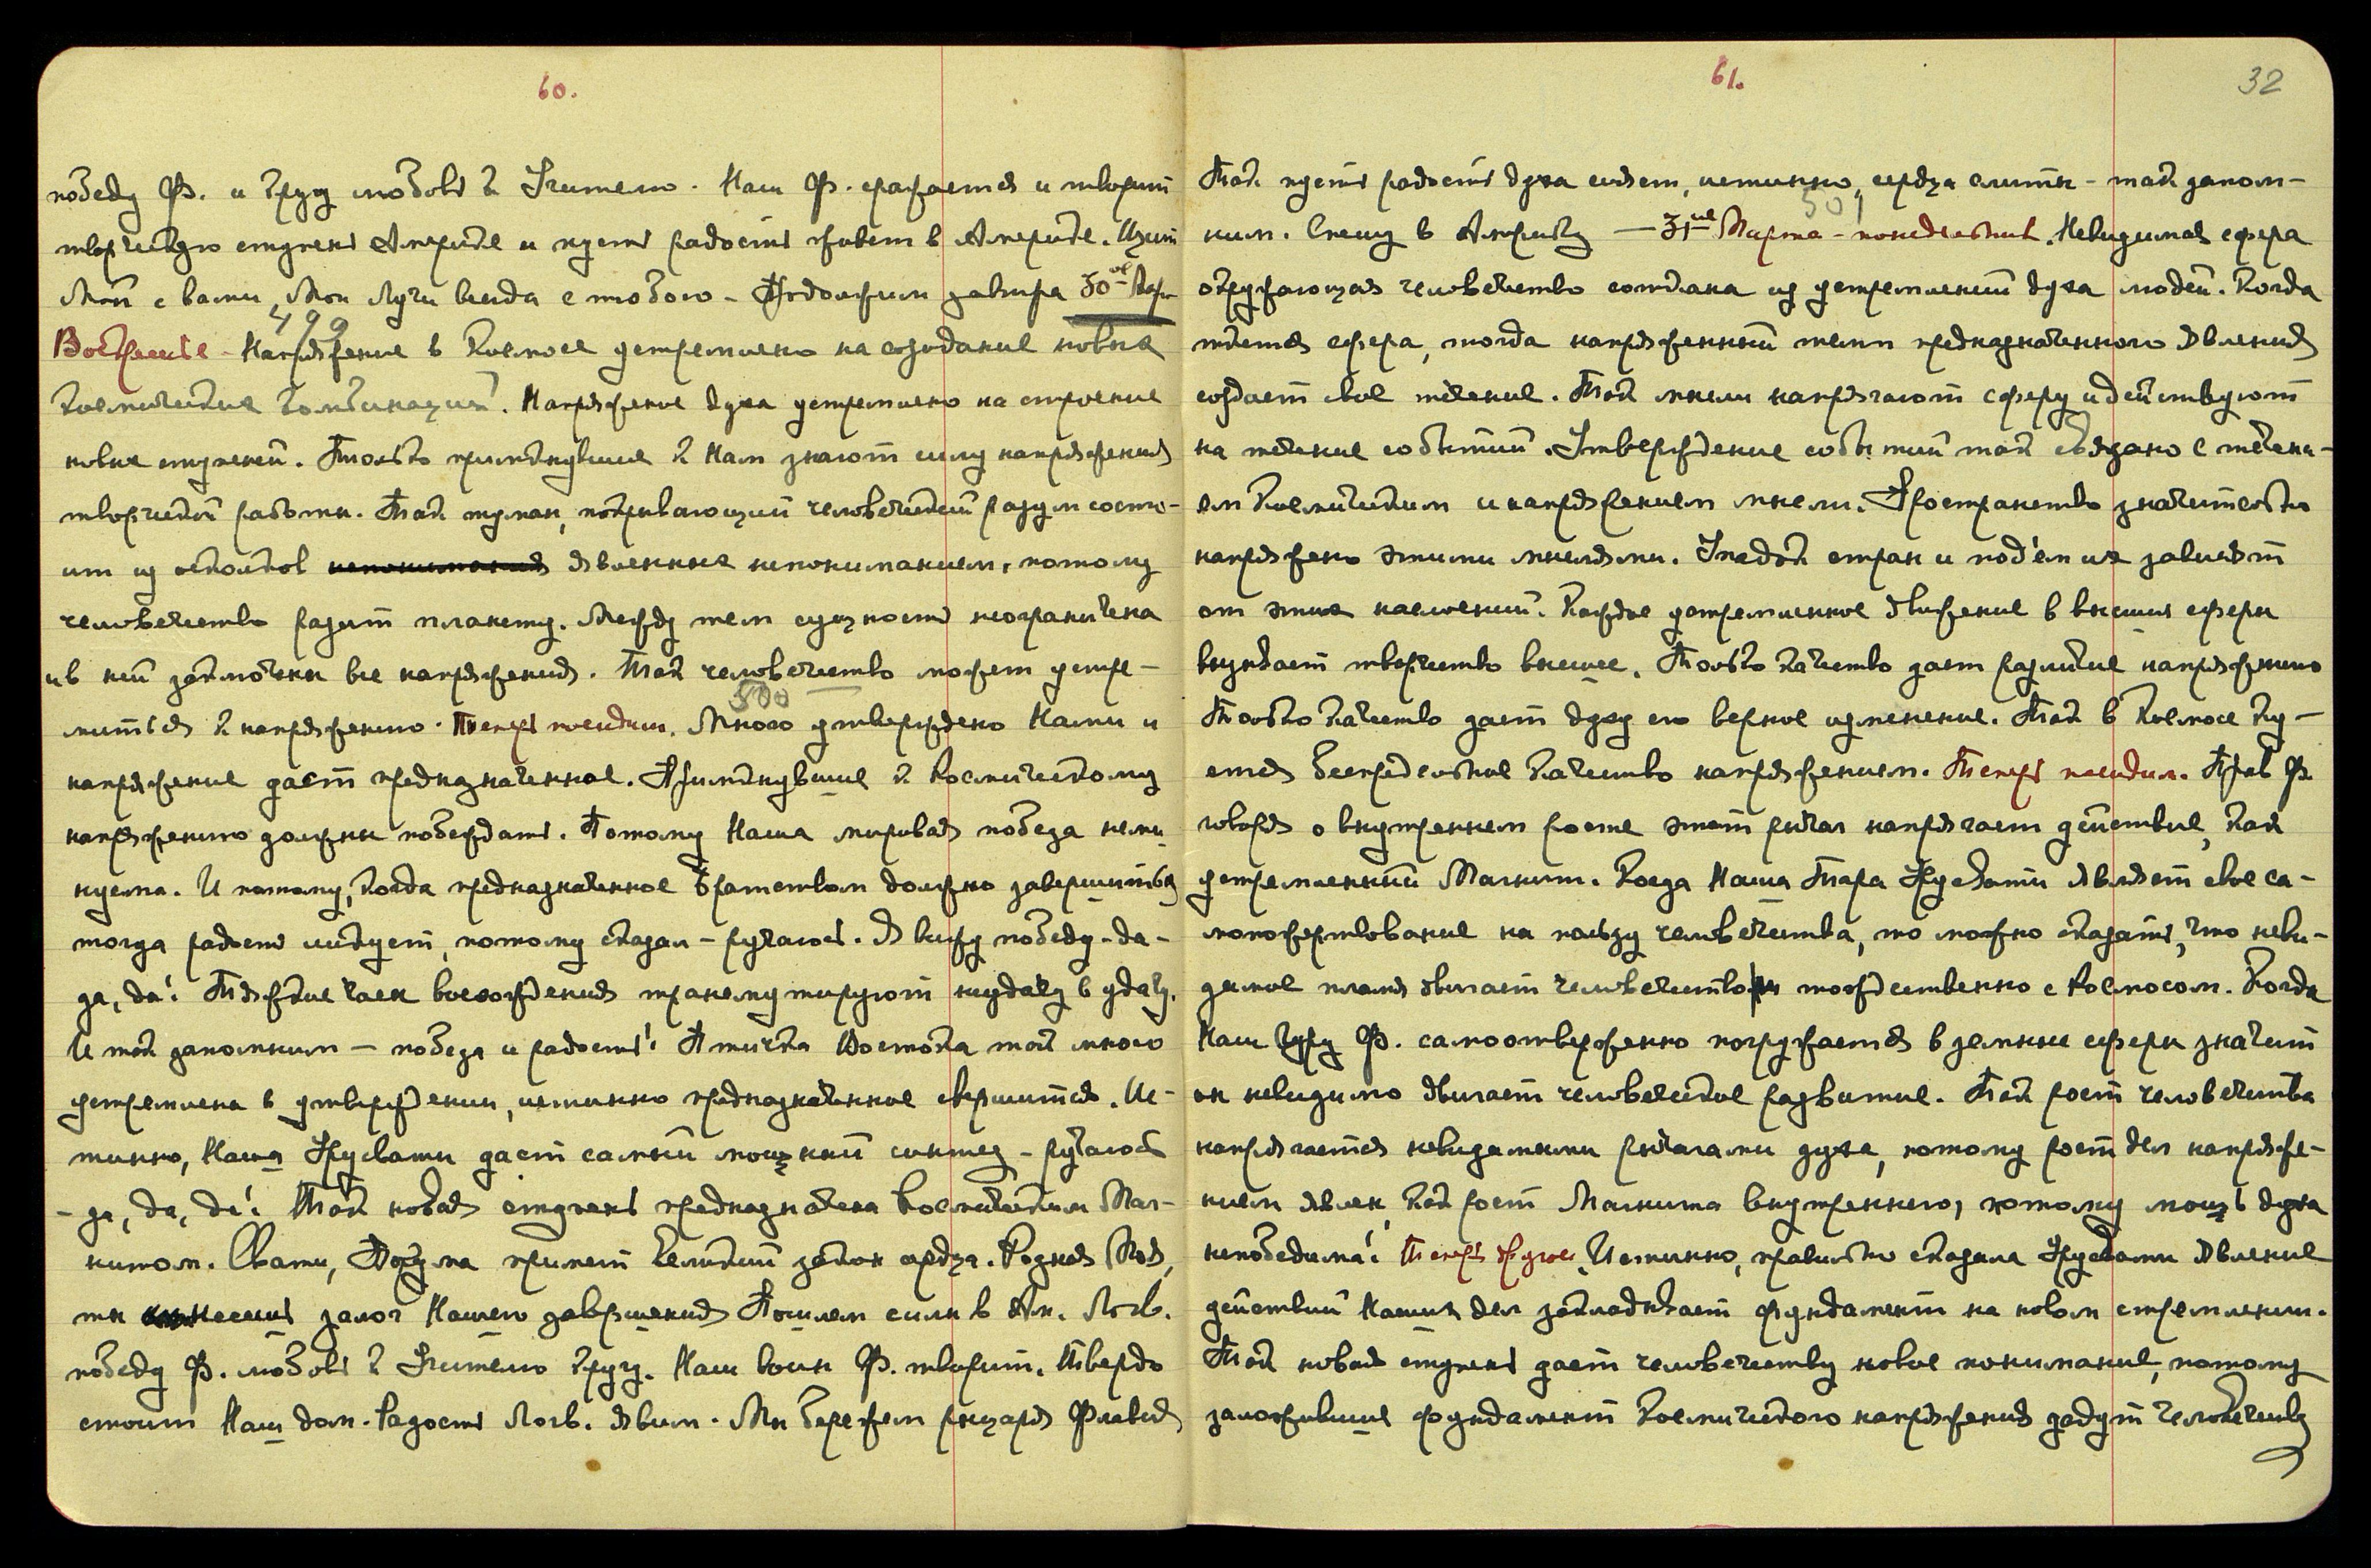 60.
победу Ф. и кругу любовь к Учителю. Наш Ф. сражается и творит
творческую ступень Америке и пусть радость живет в Америке. Щит
Мой с вами, Мои Лучи всегда с тобою – Продолжим завтра 30-ое Мар.
499
Воскресенье – Напряжение в Космосе устремлено на создание новых
космических комбинаций. Напряжение духа устремлено на строение
новых ступеней. Только примкнувшие к Нам знают силу напряжения
творческой работы. Так туман, покрывающий человеческий разум состо-
ит из осколков явленных непониманием, потому
человечество разит планету. Между тем сущность неограничена
и в ней заключены все напряжения. Так человечество может устре-
500
миться к напряжению. Теперь посидим. Много утверждено Нами и
напряжение дает предназначенное. Примкнувшие к Космическому
напряжению должны побеждать. Потому Наша мировая победа нами
нуема. И потому, когда предназначенное Братством должно завершиться
тогда радость ликует, потому сказал – ручаюсь. Я вижу победу – да –
да, да! Тяжкие часы восхождения трансмутируют неудачу в удачу.
И так запомним – победа и радость! Птичка Востока так много
устремлена в утверждении, истинно предназначенное свершится. Ис-
тинно, Наша Урусвати дает самый мощный синтез – ручаюсь
– да, да, да! Так новая ступень предназначена Космическим Маг-
нитом. Свати, Порума примет великий закон сердца. Родная Моя,
ты несешь залог Нашего завершения Пошлем силы в Ам. Логв.
победу Ф. любовь к Учителю кругу. Наш воин Ф. творит. Твердо
стоит Наш дом. Радость Логв. явим. Мы бережем рыцаря Флавия
61.
32
Так пусть радость духа сияет, истинно, сердца слиты – так запом-
501
ним. Спешу в Америку — 31-ое Марта – понедельник. Невидимая сфера
окружающая человечество соткана из устремлений духа людей. Когда
ткется сфера, тогда напряженный темп предназначенного явления
создает свое течение. Так мысли напрягают сферу и действуют
на течение событий. Утверждение событий так связано с течени-
ем Космическим и напряжением мысли. Пространство значительно
напряжено этими мыслями. Упадок стран и подъем их зависят
от этих наслоений. Каждое устремленное движение в высшие сферы
вынуждает творчество высшее. Только качество дает различие напряжению
Только качество дает духу его верное изменение. Так в Космосе ку-
ется беспредельное качество напряжением. Теперь посидим. Прав Ф.
говоря о внутреннем росте этот рычаг напрягает действие, как
устремленный Магнит. Когда Наша Тара Урусвати являет свое са-
мопожертвование на пользу человечества, то можно сказать, что неви-
димое пламя двигает человечество тождественно с Космосом. Когда
Наш Гуру Ф. самоотверженно погружается в земные сферы значит
он невидимо двигает человеческое развитие. Так рост человечества
напрягается невидимыми рычагами духа, потому рост дел напряже-
нием явлен, как рост Магнита внутреннего, потому мощь духа
непобедима! Теперь другое. Истинно, правильно сказала Урусвати явление
действий Наших дел закладывает фундамент на новом стремлении.
Так новая ступень дает человечеству новое понимание, потому
заложившие фундамент Космического напряжения дадут человечеству